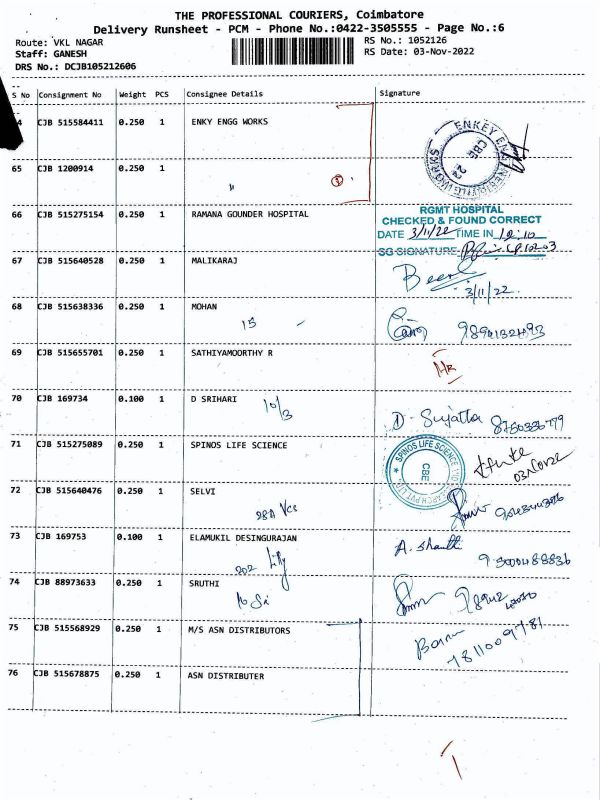 THE PROFESSIONAL COURIERS, Coimbatore
Delivery Runsheet - PCM - Phone No.:0422-3505555 - Page No.:6
Route: VKL NAGAR RS No.: 1052126
Staff: GANESH RS Date: 03-Nov-2022
DRS No.: DCJB105212606
S No Consignment No Weight PCS Consignee Details Signature
4 CJB 515584411 0.250 1 ENKY ENGG WORKS
CBE
65 CJB 1200914 0.250 1 "
66 CJB 515275154 0.250 1 RAMANA GOUNDER HOSPITAL
RGMT HOSPITAL
CHECKED & FOUND CORRECT
DATE 3/11/22 TIME IN 12:10
SG SIGNATURE
67 CJB 515640528 0.250 1 MALIKARAJ
3/11/22.
68 CJB 515638336 0.250 1 MOHAN
15 -
69 CJB 515655701 0.250 1 SATHIYAMOORTHY R
70 CJB 169734 0.100 1 D SRIHARI 10/3
D. Sujatha
71 CJB 515275089 0.250 1 SPINOS LIFE SCIENCE
SPINOS LIFE SCIENCE
CBE
03Nov22
72 CJB 515640476 0.250 1 SELVI
73 CJB 169753 0.100 1 ELAMUKIL DESINGURAJAN
202 Lily
A. Shanthi
74 CJB 88973633 0.250 1 SRUTHI
75 CJB 515568929 0.250 1 M/S ASN DISTRIBUTORS
7811009781
76 CJB 515678875 0.250 1 ASN DISTRIBUTER